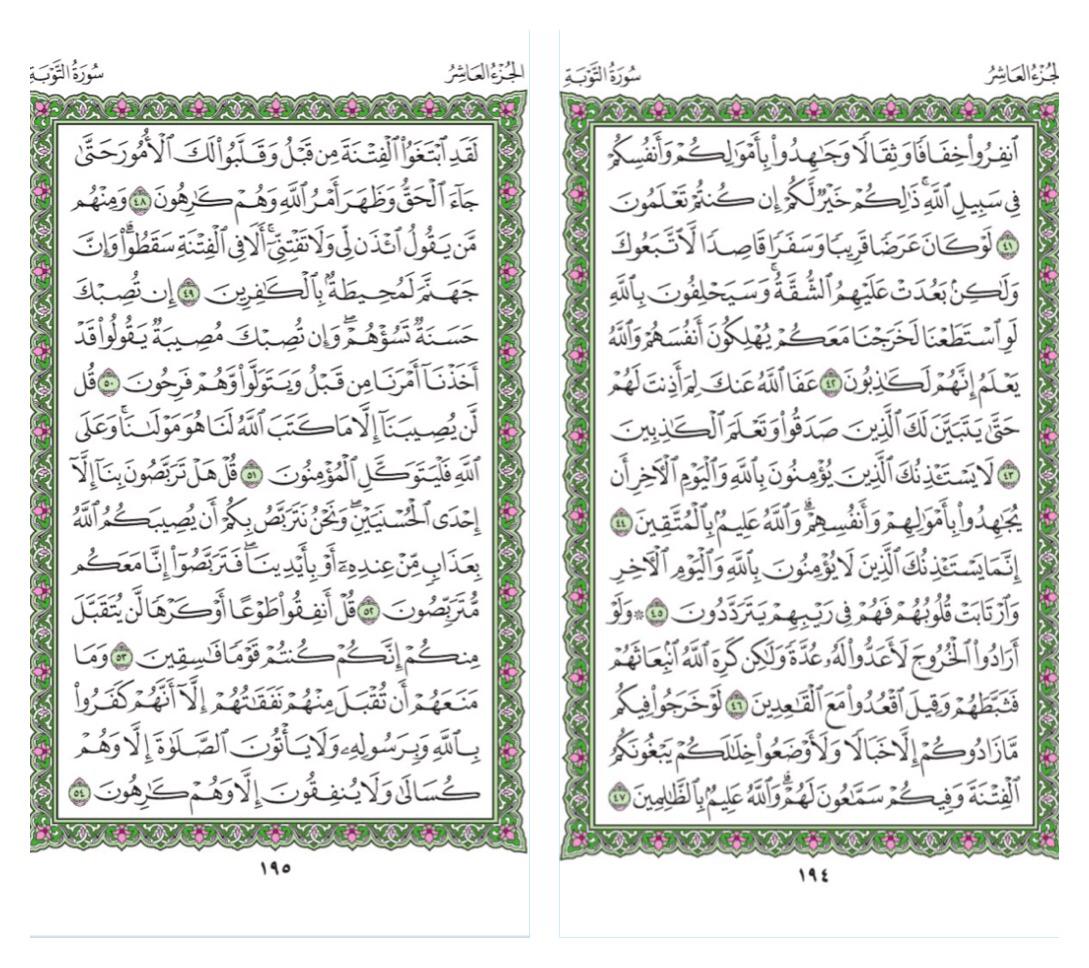 الجزء العاشر
سورة التوبة
ٱنفِرُوا۟ خِفَافًا وَثِقَالًا وَجَـٰهِدُوا۟ بِأَمْوَٰلِكُمْ وَأَنفُسِكُمْ
فِى سَبِيلِ ٱللَّهِ ۚ ذَٰلِكُمْ خَيْرٌ لَّكُمْ إِن كُنتُمْ تَعْلَمُونَ
٤١ لَوْ كَانَ عَرَضًا قَرِيبًا وَسَفَرًا قَاصِدًا لَّٱتَّبَعُوكَ
وَلَـٰكِنۢ بَعُدَتْ عَلَيْهِمُ ٱلشُّقَّةُ ۚ وَسَيَحْلِفُونَ بِٱللَّهِ
لَوِ ٱسْتَطَعْنَا لَخَرَجْنَا مَعَكُمْ يُهْلِكُونَ أَنفُسَهُمْ وَٱللَّهُ
يَعْلَمُ إِنَّهُمْ لَكَـٰذِبُونَ ٤٢ عَفَا ٱللَّهُ عَنكَ لِمَ أَذِنتَ لَهُمْ
حَتَّىٰ يَتَبَيَّنَ لَكَ ٱلَّذِينَ صَدَقُوا۟ وَتَعْلَمَ ٱلْكَـٰذِبِينَ
٤٣ لَا يَسْتَـْٔذِنُكَ ٱلَّذِينَ يُؤْمِنُونَ بِٱللَّهِ وَٱلْيَوْمِ ٱلْـَٔاخِرِ أَن
يُجَـٰهِدُوا۟ بِأَمْوَٰلِهِمْ وَأَنفُسِهِمْ ۗ وَٱللَّهُ عَلِيمٌۢ بِٱلْمُتَّقِينَ ٤٤
إِنَّمَا يَسْتَـْٔذِنُكَ ٱلَّذِينَ لَا يُؤْمِنُونَ بِٱللَّهِ وَٱلْيَوْمِ ٱلْـَٔاخِرِ
وَٱرْتَابَتْ قُلُوبُهُمْ فَهُمْ فِى رَيْبِهِمْ يَتَرَدَّدُونَ ٤٥ ۞ وَلَوْ
أَرَادُوا۟ ٱلْخُرُوجَ لَأَعَدُّوا۟ لَهُۥ عُدَّةً وَلَـٰكِن كَرِهَ ٱللَّهُ ٱنۢبِعَاثَهُمْ
فَثَبَّطَهُمْ وَقِيلَ ٱقْعُدُوا۟ مَعَ ٱلْقَـٰعِدِينَ ٤٦ لَوْ خَرَجُوا۟ فِيكُم
مَّا زَادُوكُمْ إِلَّا خَبَالًا وَلَأَوْضَعُوا۟ خِلَـٰلَكُمْ يَبْغُونَكُمُ
ٱلْفِتْنَةَ وَفِيكُمْ سَمَّـٰعُونَ لَهُمْ ۗ وَٱللَّهُ عَلِيمٌۢ بِٱلظَّـٰلِمِينَ ٤٧
١٩٤
الجزء العاشر
سورة التوبة
لَقَدِ ٱبْتَغَوُا۟ ٱلْفِتْنَةَ مِن قَبْلُ وَقَلَّبُوا۟ لَكَ ٱلْأُمُورَ حَتَّىٰ
جَآءَ ٱلْحَقُّ وَظَهَرَ أَمْرُ ٱللَّهِ وَهُمْ كَـٰرِهُونَ ٤٨ وَمِنْهُم
مَّن يَقُولُ ٱئْذَن لِّى وَلَا تَفْتِنِّىٓ ۚ أَلَا فِى ٱلْفِتْنَةِ سَقَطُوا۟ ۗ وَإِنَّ
جَهَنَّمَ لَمُحِيطَةٌۢ بِٱلْكَـٰفِرِينَ ٤٩ إِن تُصِبْكَ
حَسَنَةٌ تَسُؤْهُمْ ۖ وَإِن تُصِبْكَ مُصِيبَةٌ يَقُولُوا۟ قَدْ
أَخَذْنَآ أَمْرَنَا مِن قَبْلُ وَيَتَوَلَّوا۟ وَّهُمْ فَرِحُونَ ٥٠ قُل
لَّن يُصِيبَنَآ إِلَّا مَا كَتَبَ ٱللَّهُ لَنَا هُوَ مَوْلَىٰنَا ۚ وَعَلَى
ٱللَّهِ فَلْيَتَوَكَّلِ ٱلْمُؤْمِنُونَ ٥١ قُلْ هَلْ تَرَبَّصُونَ بِنَآ إِلَّآ
إِحْدَى ٱلْحُسْنَيَيْنِ ۖ وَنَحْنُ نَتَرَبَّصُ بِكُمْ أَن يُصِيبَكُمُ ٱللَّهُ
بِعَذَابٍ مِّنْ عِندِهِۦٓ أَوْ بِأَيْدِينَا ۖ فَتَرَبَّصُوٓا۟ إِنَّا مَعَكُم
مُّتَرَبِّصُونَ ٥٢ قُلْ أَنفِقُوا۟ طَوْعًا أَوْ كَرْهًا لَّن يُتَقَبَّلَ
مِنكُمْ ۖ إِنَّكُمْ كُنتُمْ قَوْمًا فَـٰسِقِينَ ٥٣ وَمَا
مَنَعَهُمْ أَن تُقْبَلَ مِنْهُمْ نَفَقَـٰتُهُمْ إِلَّآ أَنَّهُمْ كَفَرُوا۟
بِٱللَّهِ وَبِرَسُولِهِۦ وَلَا يَأْتُونَ ٱلصَّلَوٰةَ إِلَّا وَهُمْ
كُسَالَىٰ وَلَا يُنفِقُونَ إِلَّا وَهُمْ كَـٰرِهُونَ ٥٤
١٩٥